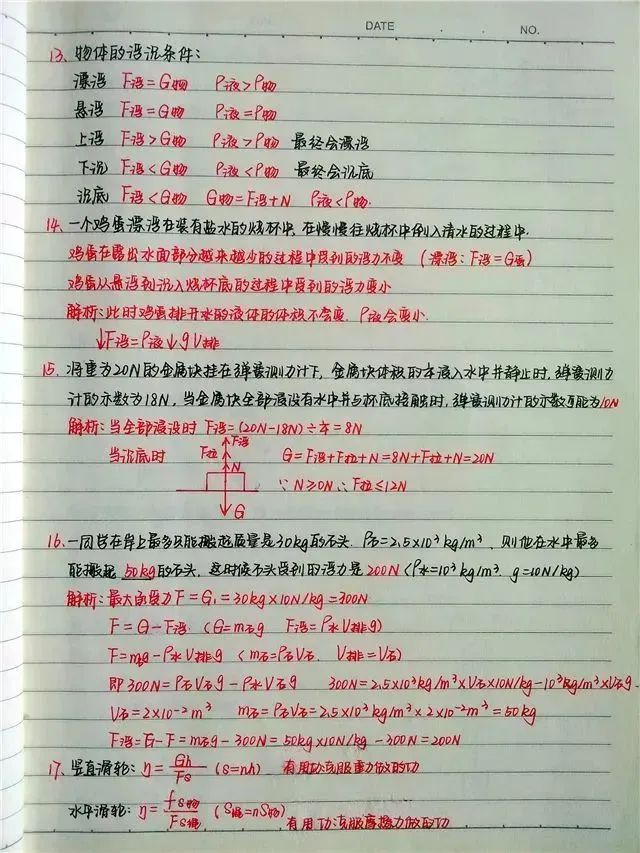 DATE NO.
13、物体的浮沉条件:
漂浮 F浮=G物 ρ液>ρ物
悬浮 F浮=G物 ρ液=ρ物
上浮 F浮>G物 ρ液>ρ物 最终会漂浮
下沉 F浮<G物 ρ液<ρ物 最终会沉底
沉底 F浮<G物 G物=F浮+N ρ液<ρ物.
14、一个鸡蛋漂浮在装有盐水的烧杯中, 在慢慢往烧杯中倒入清水的过程中.
鸡蛋在露出水面部分越来越少的过程中受到的浮力不变 (漂浮: F浮=G蛋)
鸡蛋从悬浮到沉入烧杯底的过程中受到的浮力变小
解析: 此时鸡蛋排开水的液体的体积不会变. ρ液会变小.
↓F浮=ρ液↓gV排
15、将重为20N的金属块挂在弹簧测力计下, 金属块体积的 浸入水中并静止时, 弹簧测力
计的示数为18N, 当金属块全部浸没有水中并与杯底接触时, 弹簧测力计的示数可能为10N
解析: 当全部浸没时 F浮=(20N-18N)÷ =8N
当沉底时 G=F浮+F拉+N=8N+F拉+N=20N
F浮
F拉
N
∵N≥0N ∴F拉≤12N
G
16、一同学在岸上最多只能搬起质量是30kg的石头. ρ石=2.5×10³kg/m³, 则他在水中最多
能搬起 50kg的石头, 这时候石头受到的浮力是200N (ρ水=10³kg/m³. g=10N/kg)
解析: 最大的受力F=G₁=30kg×10N/kg=300N
F=G-F浮. (G=m石g F浮=ρ水V排g)
F=m石g-ρ水V排g (m石=ρ石V石. V排=V石)
即300N=ρ石V石g-ρ水V石g 300N=2.5×10³kg/m³×V石×10N/kg-10³kg/m³×V石g.
V石=2×10⁻²m³ m石=ρ石V石=2.5×10³kg/m³×2×10⁻²m³=50kg
F浮=G-F=m石g-300N=50kg×10N/kg-300N=200N
17、竖直滑轮: η=Gh/Fs (s=nh) 有用功克服重力做的功
水平滑轮: η=fs物/Fs绳 (s绳=ns物) 有用功克服摩擦力做的功